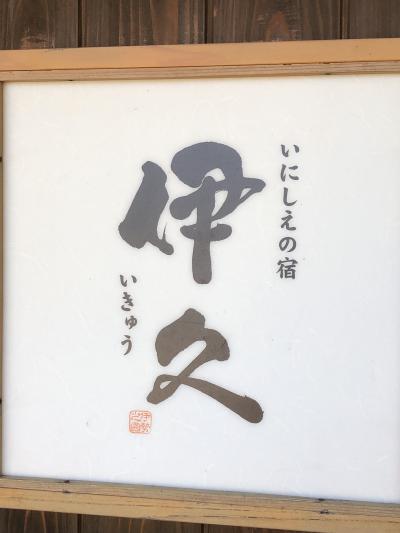 いにしえの宿
伊久
いきゅう